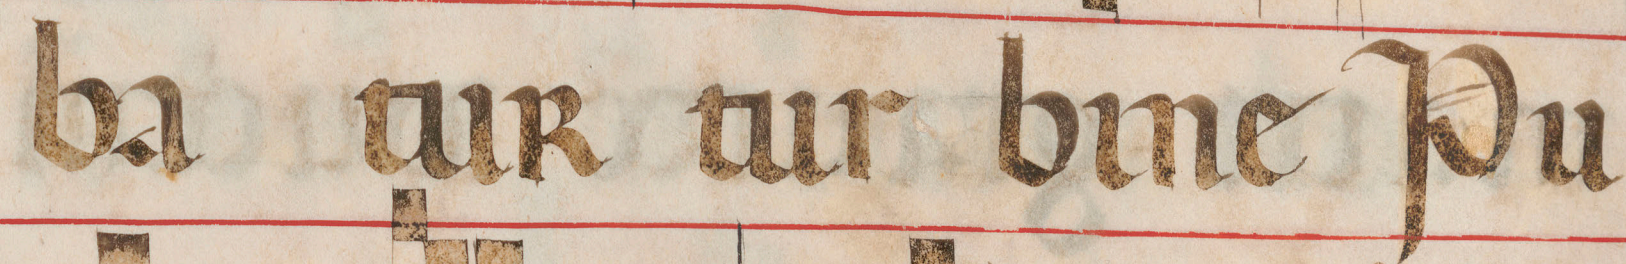 ba tur tur bine Pu